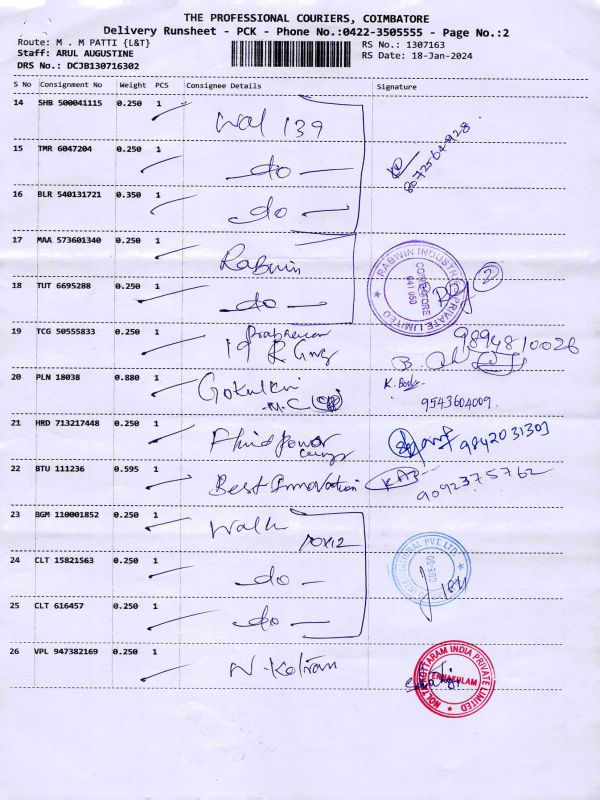 THE PROFESSIONAL COURIERS, COIMBATORE
Delivery Runsheet - PCK - Phone No.:0422-3505555 - Page No.:2
Route: M . M PATTI {L&T}
RS No.: 1307163
Staff: ARUL AUGUSTINE
RS Date: 18-Jan-2024
DRS No.: DCJB130716302
S No Consignment No Weight PCS Consignee Details Signature
14 SHB 500041115 0.250 1 139
8072564928
15 TMR 6047204 0.250 1 do —
16 BLR 540131721 0.350 1 do —
17 MAA 573601340 0.250 1 Rabwin
RABWIN INDUSTRIES PRIVATE LIMITED
COIMBATORE
641 050
2
18 TUT 6695288 0.250 1 do —
19 TCG 50555833 0.250 1
9894810026
20 PLN 18038 0.880 1
9543604009
21 HRD 713217448 0.250 1 Fluid Power
9842031309
22 BTU 111236 0.595 1 Best Innovation
9092375762
23 BGM 110001852 0.250 1
24 CLT 15821563 0.250 1 do —
PVT. LTD.
25 CLT 616457 0.250 1 do —
26 VPL 947382169 0.250 1
INDIA PRIVATE LIMITED
ERNAKULAM